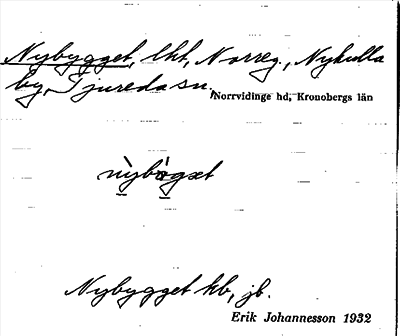 Nybygget, lht, Norreg., Nykulla
by, Tjureda sn,
Norrvidinge hd, Kronobergs län
nỳbògət
Nybygget kb, jb.
Erik Johannesson 1932